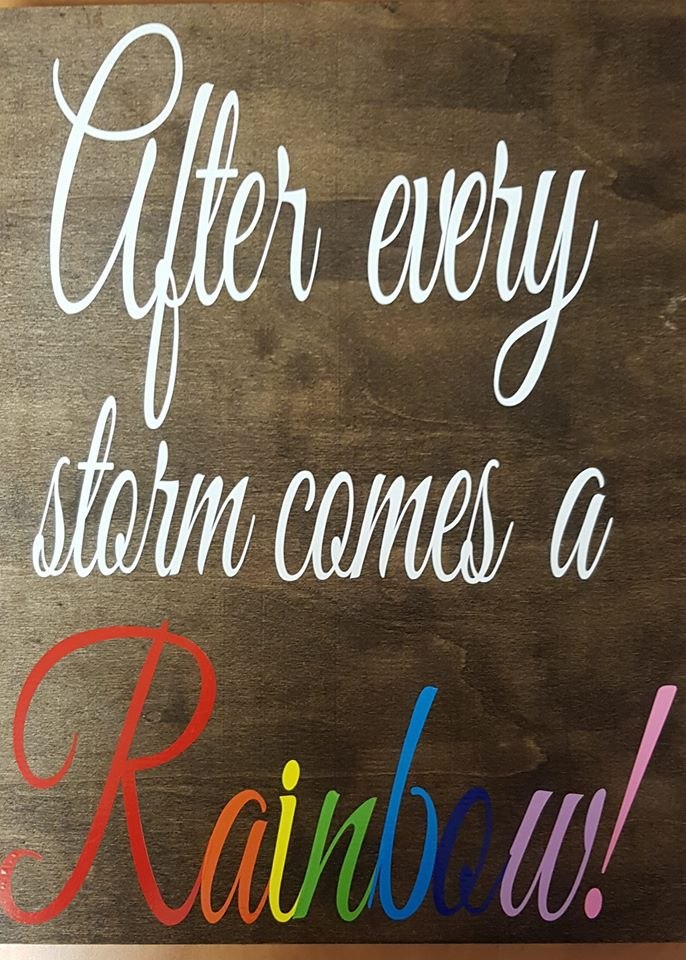 After every
storm comes a
Rainbow!